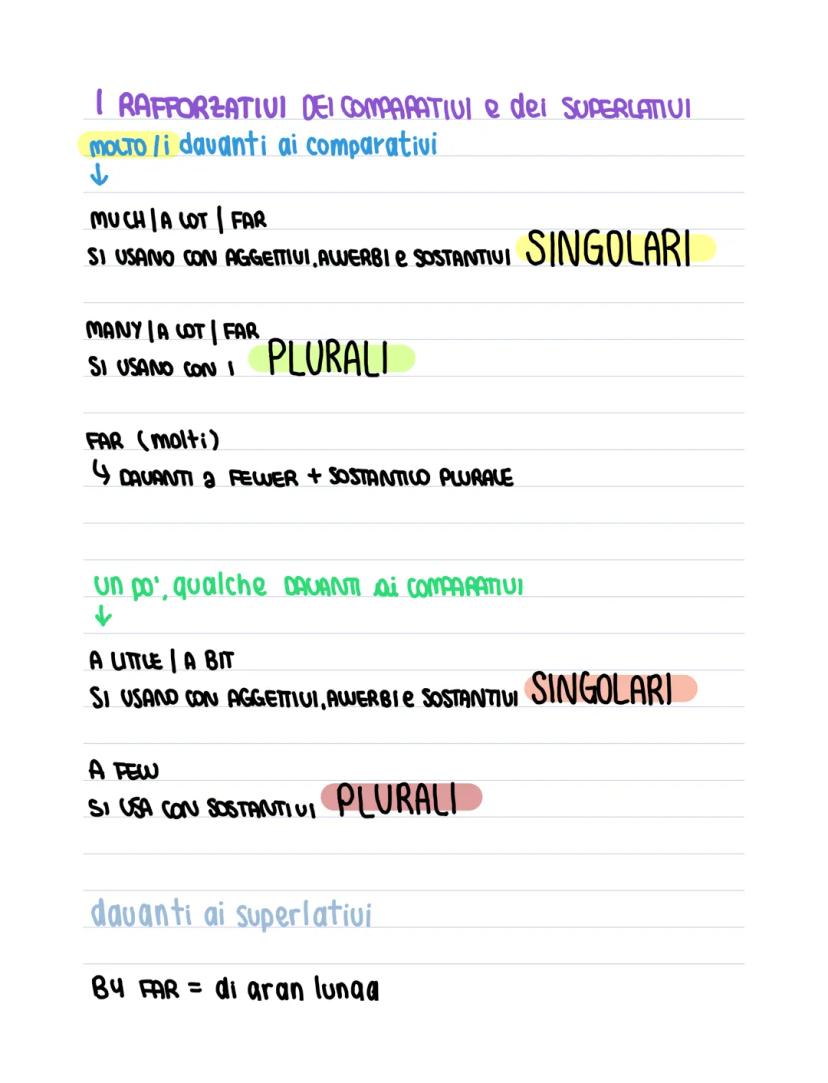 I RAFFORZATIVI DEI COMPARATIVI e dei SUPERLATIVI
MOLTO/i davanti ai comparativi
↓
MUCH | A LOT | FAR
SI USANO CON AGGETTIVI, AVVERBI e SOSTANTIVI SINGOLARI
MANY | A LOT | FAR
SI USANO CON I PLURALI
FAR (molti)
↳ DAVANTI a FEWER + SOSTANTICO PLURALE
un po', qualche DAVANTI ai COMPARATIVI
↓
A LITTLE | A BIT
SI USANO CON AGGETTIVI, AVVERBI e SOSTANTIVI SINGOLARI
A FEW
SI USA CON SOSTANTIVI PLURALI
davanti ai superlativi
BY FAR = di gran lunga